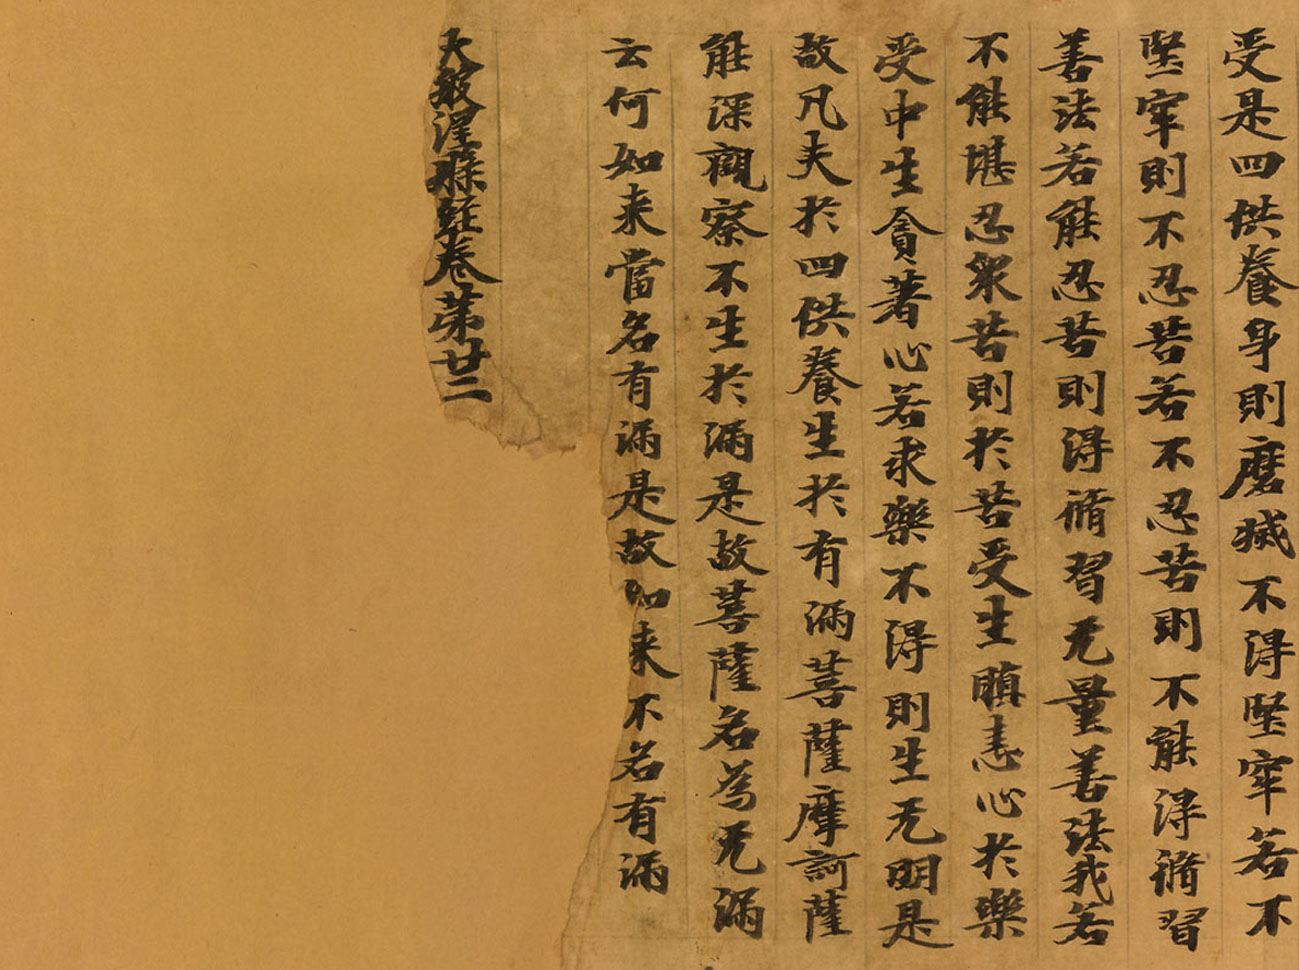 受是四供養身則磨滅不得堅牢若不
堅牢則不忍苦若不忍苦則不能得脩習
善法若能忍苦則得脩習无量善法我若
不能堪忍衆苦則於苦受生瞋恚心於樂
受中生貪著心若求樂不得則生无明是
故凡夫於四供養生於有漏菩薩摩訶薩
能深觀察不生於漏是故菩薩名為无漏
云何如来當名有漏是故如来不名有漏
大般涅槃經卷第廿二